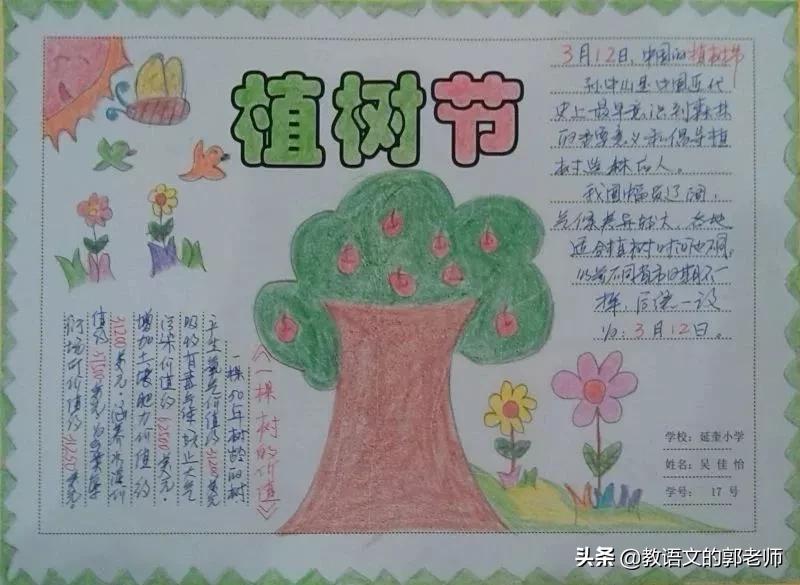 植树节
3月12日,中国的植树节
孙中山是中国近代
史上最早意识到森林
的重要意义和倡导植
树造林的人。
我国幅员辽阔,
气候差异较大,各地
适合植树时间也不同,
以前不同省市日期不一
样,后统一设
为:3月12日。
《一棵树的价值》
一棵50年树龄的树
产生氧气价值约美元
吸收有毒气体防止大气
污染价值约美元
增加土壤肥力价值约
31200美元,涵养水源价
值约美元
价值约31250美元。
学校:延奎小学
姓名:吴佳怡
学号:17号
头条 @教语文的郭老师